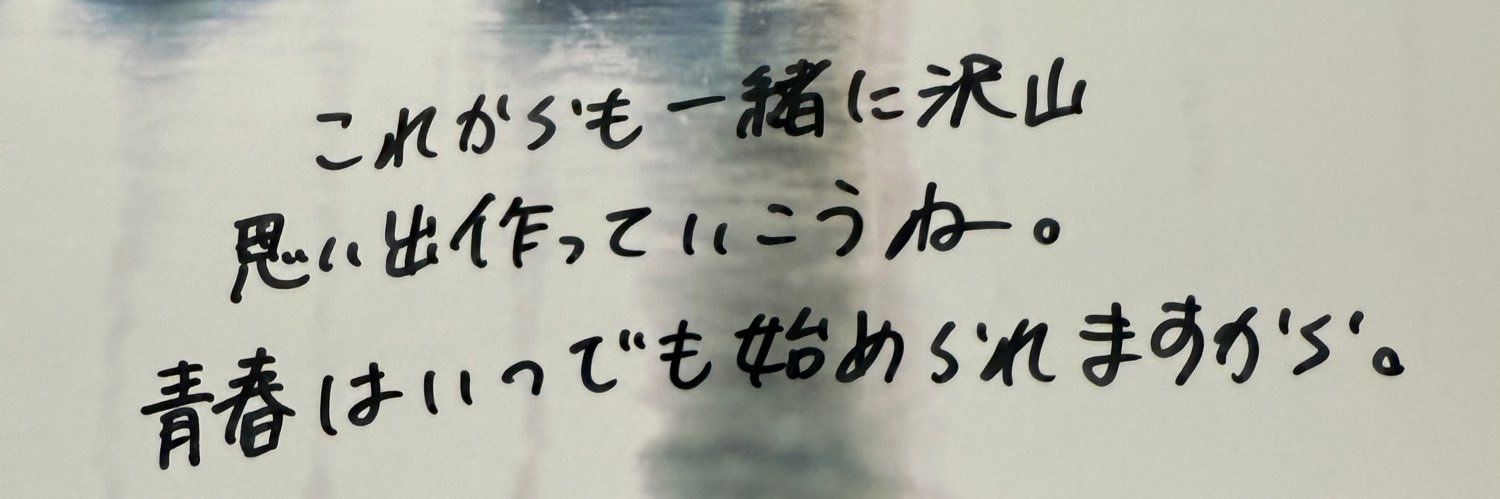 これからも一緒に沢山
思い出作っていこうね。
青春はいつでも始められますから。